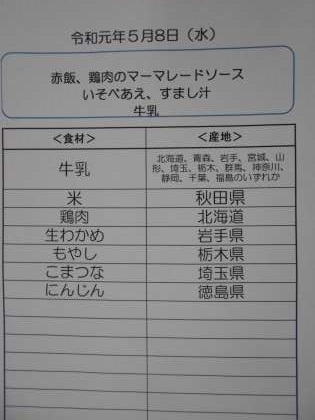 令和元年５月８日（水）
赤飯、鶏肉のマーマレードソース
いそべあえ、すまし汁
牛乳
＜食材＞ ＜産地＞
牛乳 北海道、青森、岩手、宮城、山
形、埼玉、栃木、群馬、神奈川、
静岡、千葉、福島のいずれか
米 秋田県
鶏肉 北海道
生わかめ 岩手県
もやし 栃木県
こまつな 埼玉県
にんじん 徳島県